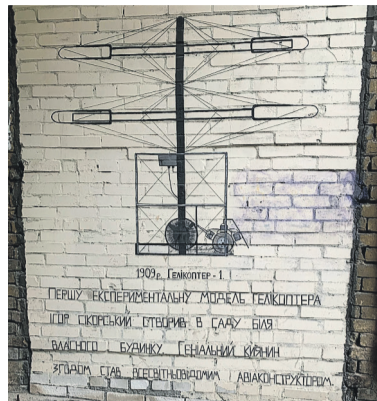 1909р. Гелікоптер - 1.
Першу експериментальну модель гелікоптера
Ігор Сікорський створив в саду біля
власного будинку. Геніальний киянин
згодом став всесвітньовідомим авіаконструктором.